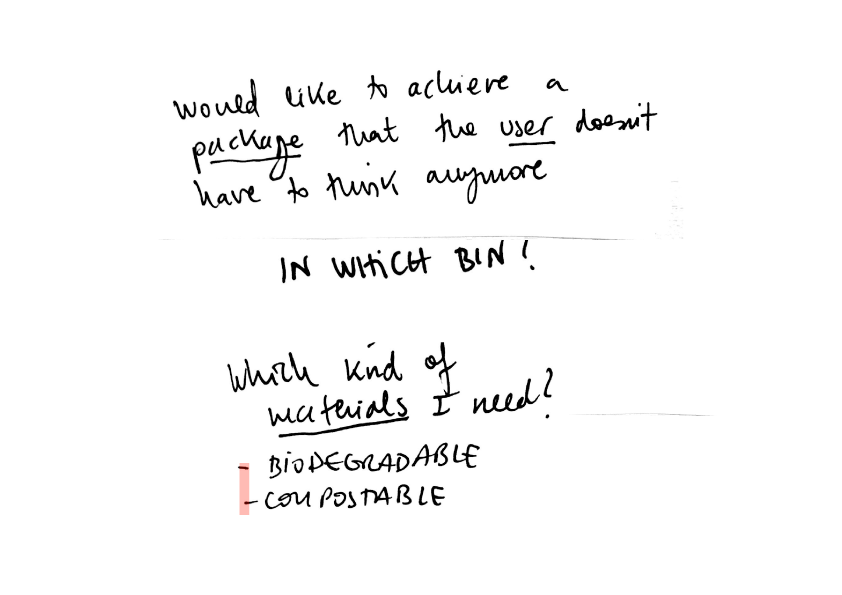 would like to achieve a
package that the user doesn't
have to think anymore
IN WHICH BIN!
Which kind of
materials I need?
- BIODEGRADABLE
- COMPOSTABLE